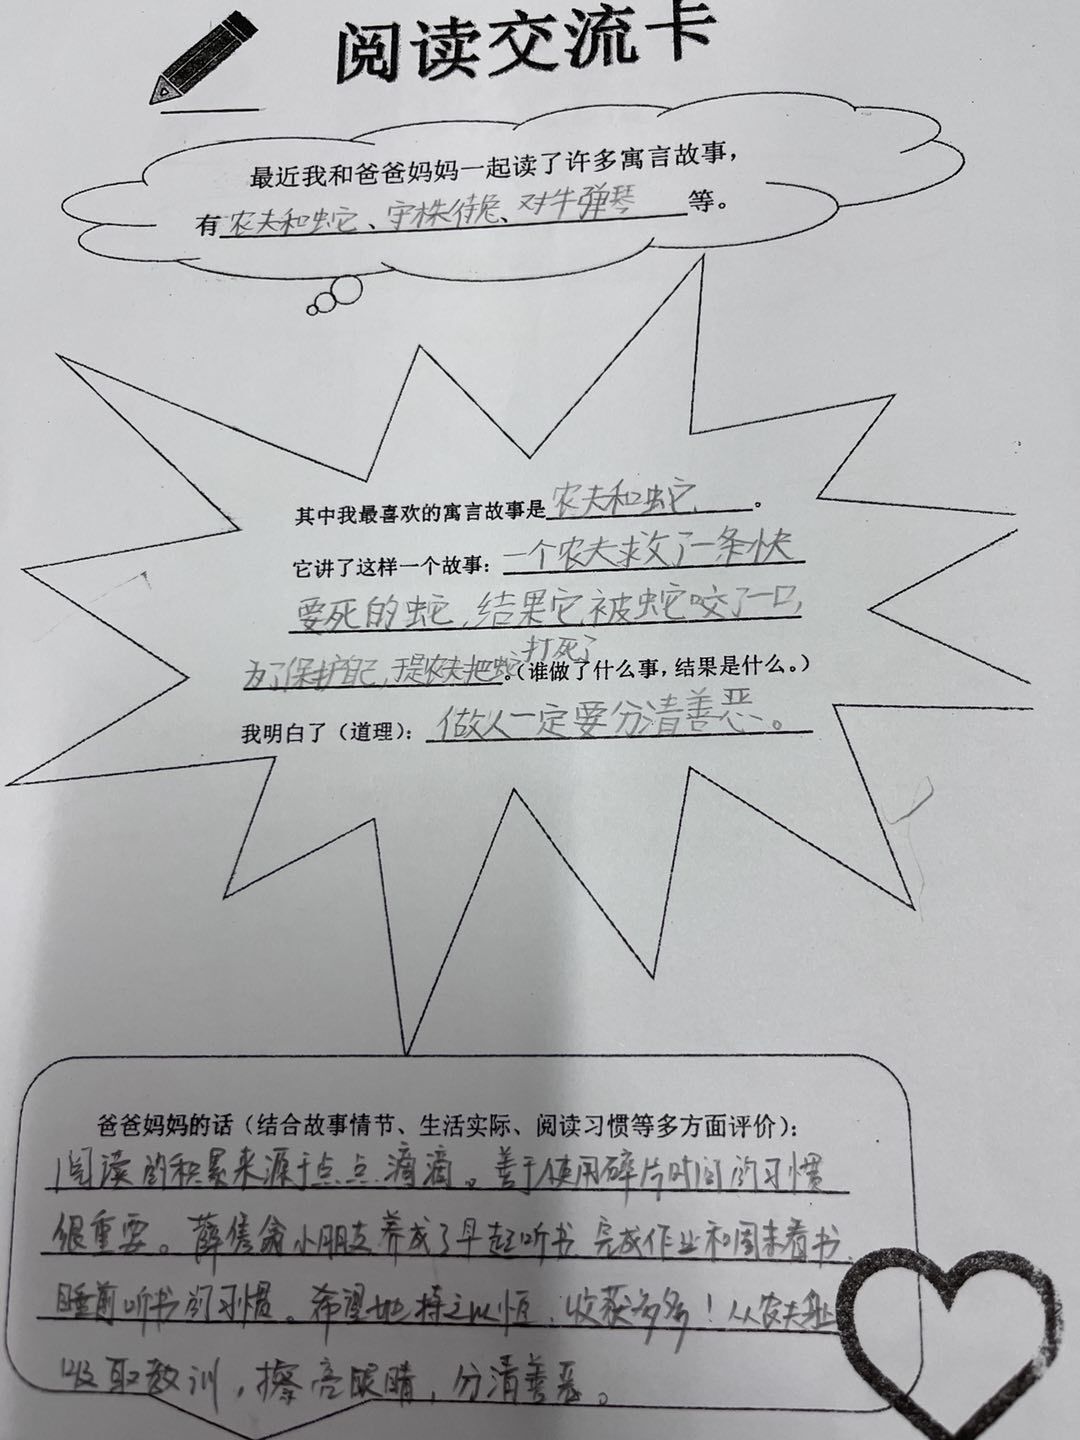 阅读交流卡
最近我和爸爸妈妈一起读了许多寓言故事，
有农夫和蛇、守株待兔、对牛弹琴等。
其中我最喜欢的寓言故事是农夫和蛇。
它讲了这样一个故事：一个农夫救了一条快
要死的蛇，结果它被蛇咬了一口，
打死了
为了保护自己，于是农夫把蛇。（谁做了什么事，结果是什么。）
我明白了（道理）：做人一定要分清善恶。
爸爸妈妈的话（结合故事情节、生活实际、阅读习惯等多方面评价）：
阅读的积累来源于点点滴滴。善于使用碎片时间的习惯
很重要。薛小朋友养成了早起听书、完成作业和周末看书、
睡前听书的习惯。希望她持之以恒，收获多多！从农夫身上
吸取教训，擦亮眼睛，分清善恶。